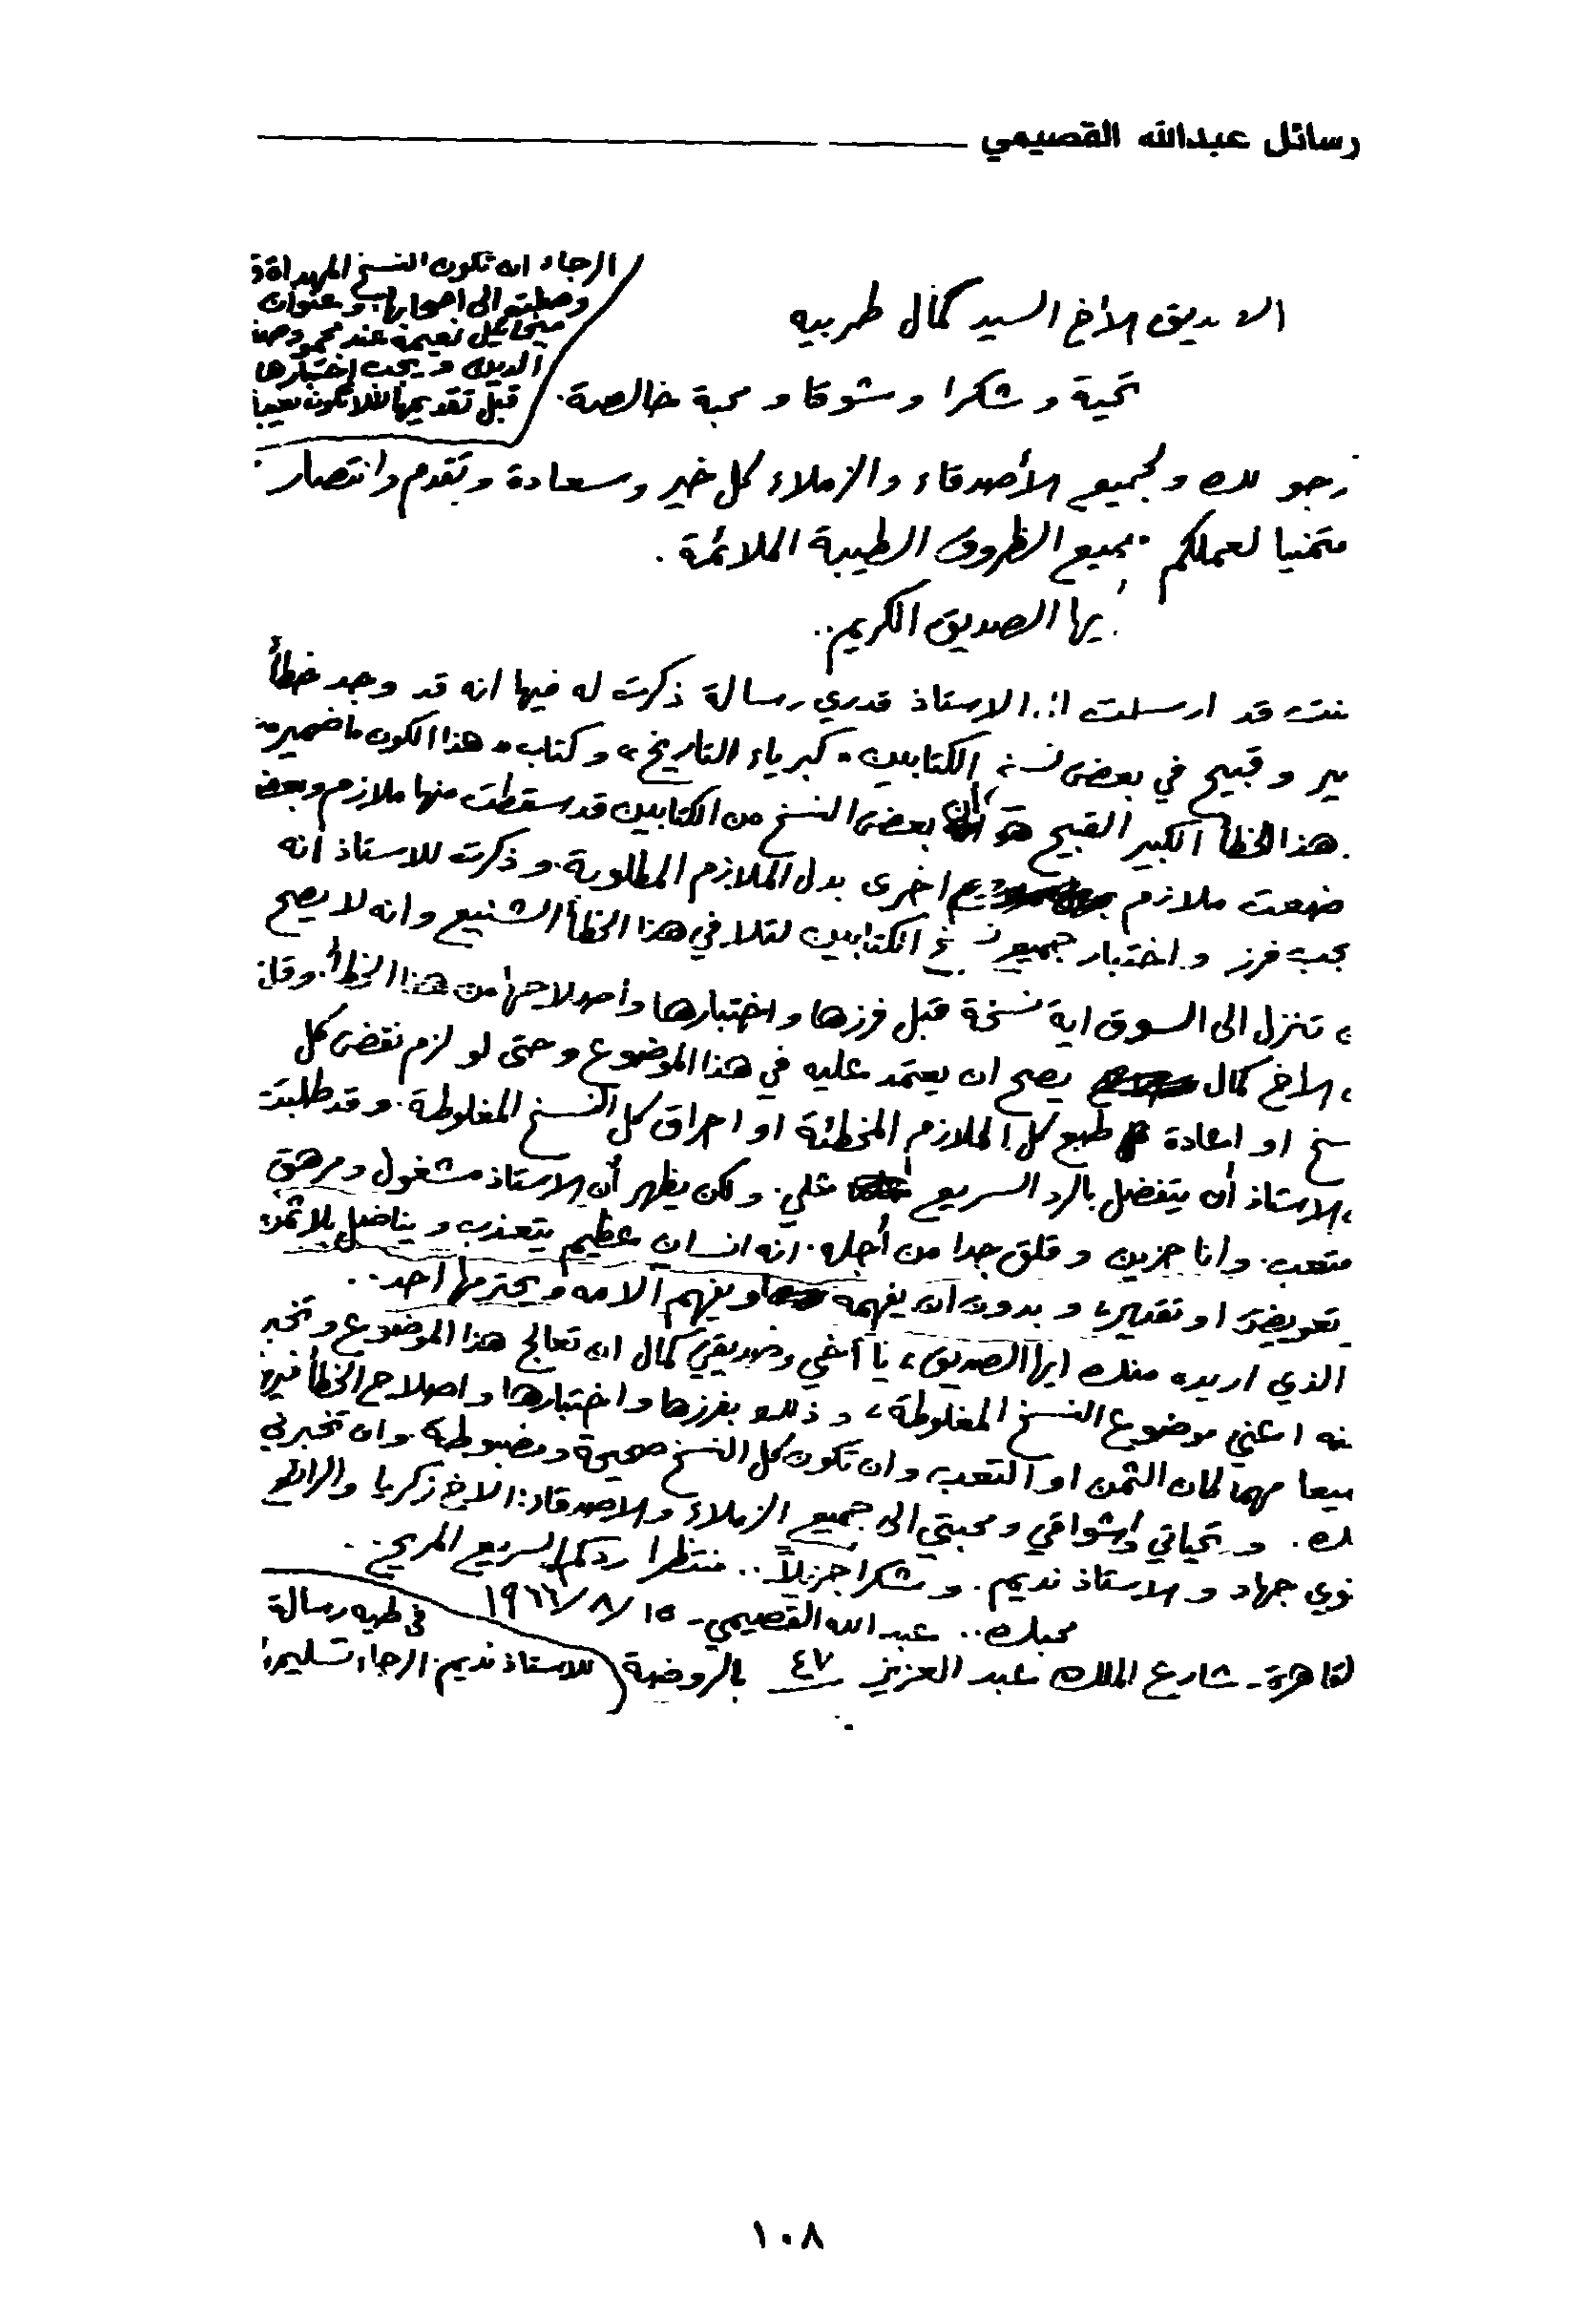 رسائل عبدالله القصيمي
الرجاء ان تكون النسخ المهداة
وصلت الى اصحابها وعنوان
ميخائيل نعيمة عند محمود صف
الدين ويجب إختبارها
قبل تقديمها لئلا تكون معيبا
الصديق الأخ السيد كمال طربيه
تحية وشكرا وشوقا ومحبة خالصة.
رجو لك ولجميع الأصدقاء والزملاء كل خير وسعادة وتقدم وانتصار
متمنيا لعملكم جميع الظروف الطيبة الملائمة.
يها الصديق الكريم..
نت قد ارسلت الى الاستاذ قدري رسالة ذكرت له فيها انه قد وجد خطأ
ير وقبيح في بعض نسخ الكتابين "كبرياء التاريخ" وكتاب "هذا الكون ما ضميره
هذا الخطأ الكبير القبيح هو أن بعض النسخ من الكتابين قد سقطت منها ملازم وبعض
ضعت ملازم اخرى بدل الملازم المطلوبة. وذكرت للاستاذ انه
جب فرز واختبار جميع نسخ الكتابين لتلافي هذا الخطأ الشنيع وانه لا يصح
تنزل الى السوق اية نسخة قبل فرزها واختبارها واصلاحها من هذا الخطأ. وقلت
الأخ كمال يصح ان يعتمد عليه في هذا الموضوع وحتى لو لزم نقض كل
سخ او اعادة طبع كل الملازم المخطئة او احراق كل النسخ المغلوطة. وقد طلبت
الاستاذ أن يتفضل بالرد السريع علي. ولكن يظهر أن الاستاذ مشغول ومرهق
متعب. وانا حزين وقلق جدا من أجله. انه انسان عظيم يتعذب ويناضل بلا ثمن
تعويض او تقدير، وبدون ان يفهمه ويفهم آلامه ويحترمها أحد..
الذي اريده منك ايها الصديق، يا أخي وصديقي كمال ان تعالج هذا الموضوع وتخبر
نه اعني موضوع النسخ المغلوطة، وذلك بفرزها واختبارها واصلاح الخطأ فيها
ميعا مهما كان الثمن او التعب وان تكون كل النسخ صحيحة ومضبوطة. وان تخبرني
لك. وتحياتي واشواقي ومحبتي الى جميع الزملاء والاصدقاء: الاخ زكريا والرائع
نوي جهاد والاستاذ نديم. وشكرا جزيلاً.. منتظرا ردكم السريع المريح..
محبك.. عبد الله القصيمي - ١٥/٨/١٩٦٦
لقاهرة - شارع الملك عبد العزيز ٤٧ بالروضة
في طيه رسالة
للاستاذ نديم. الرجاء تسليمها
١٠٨